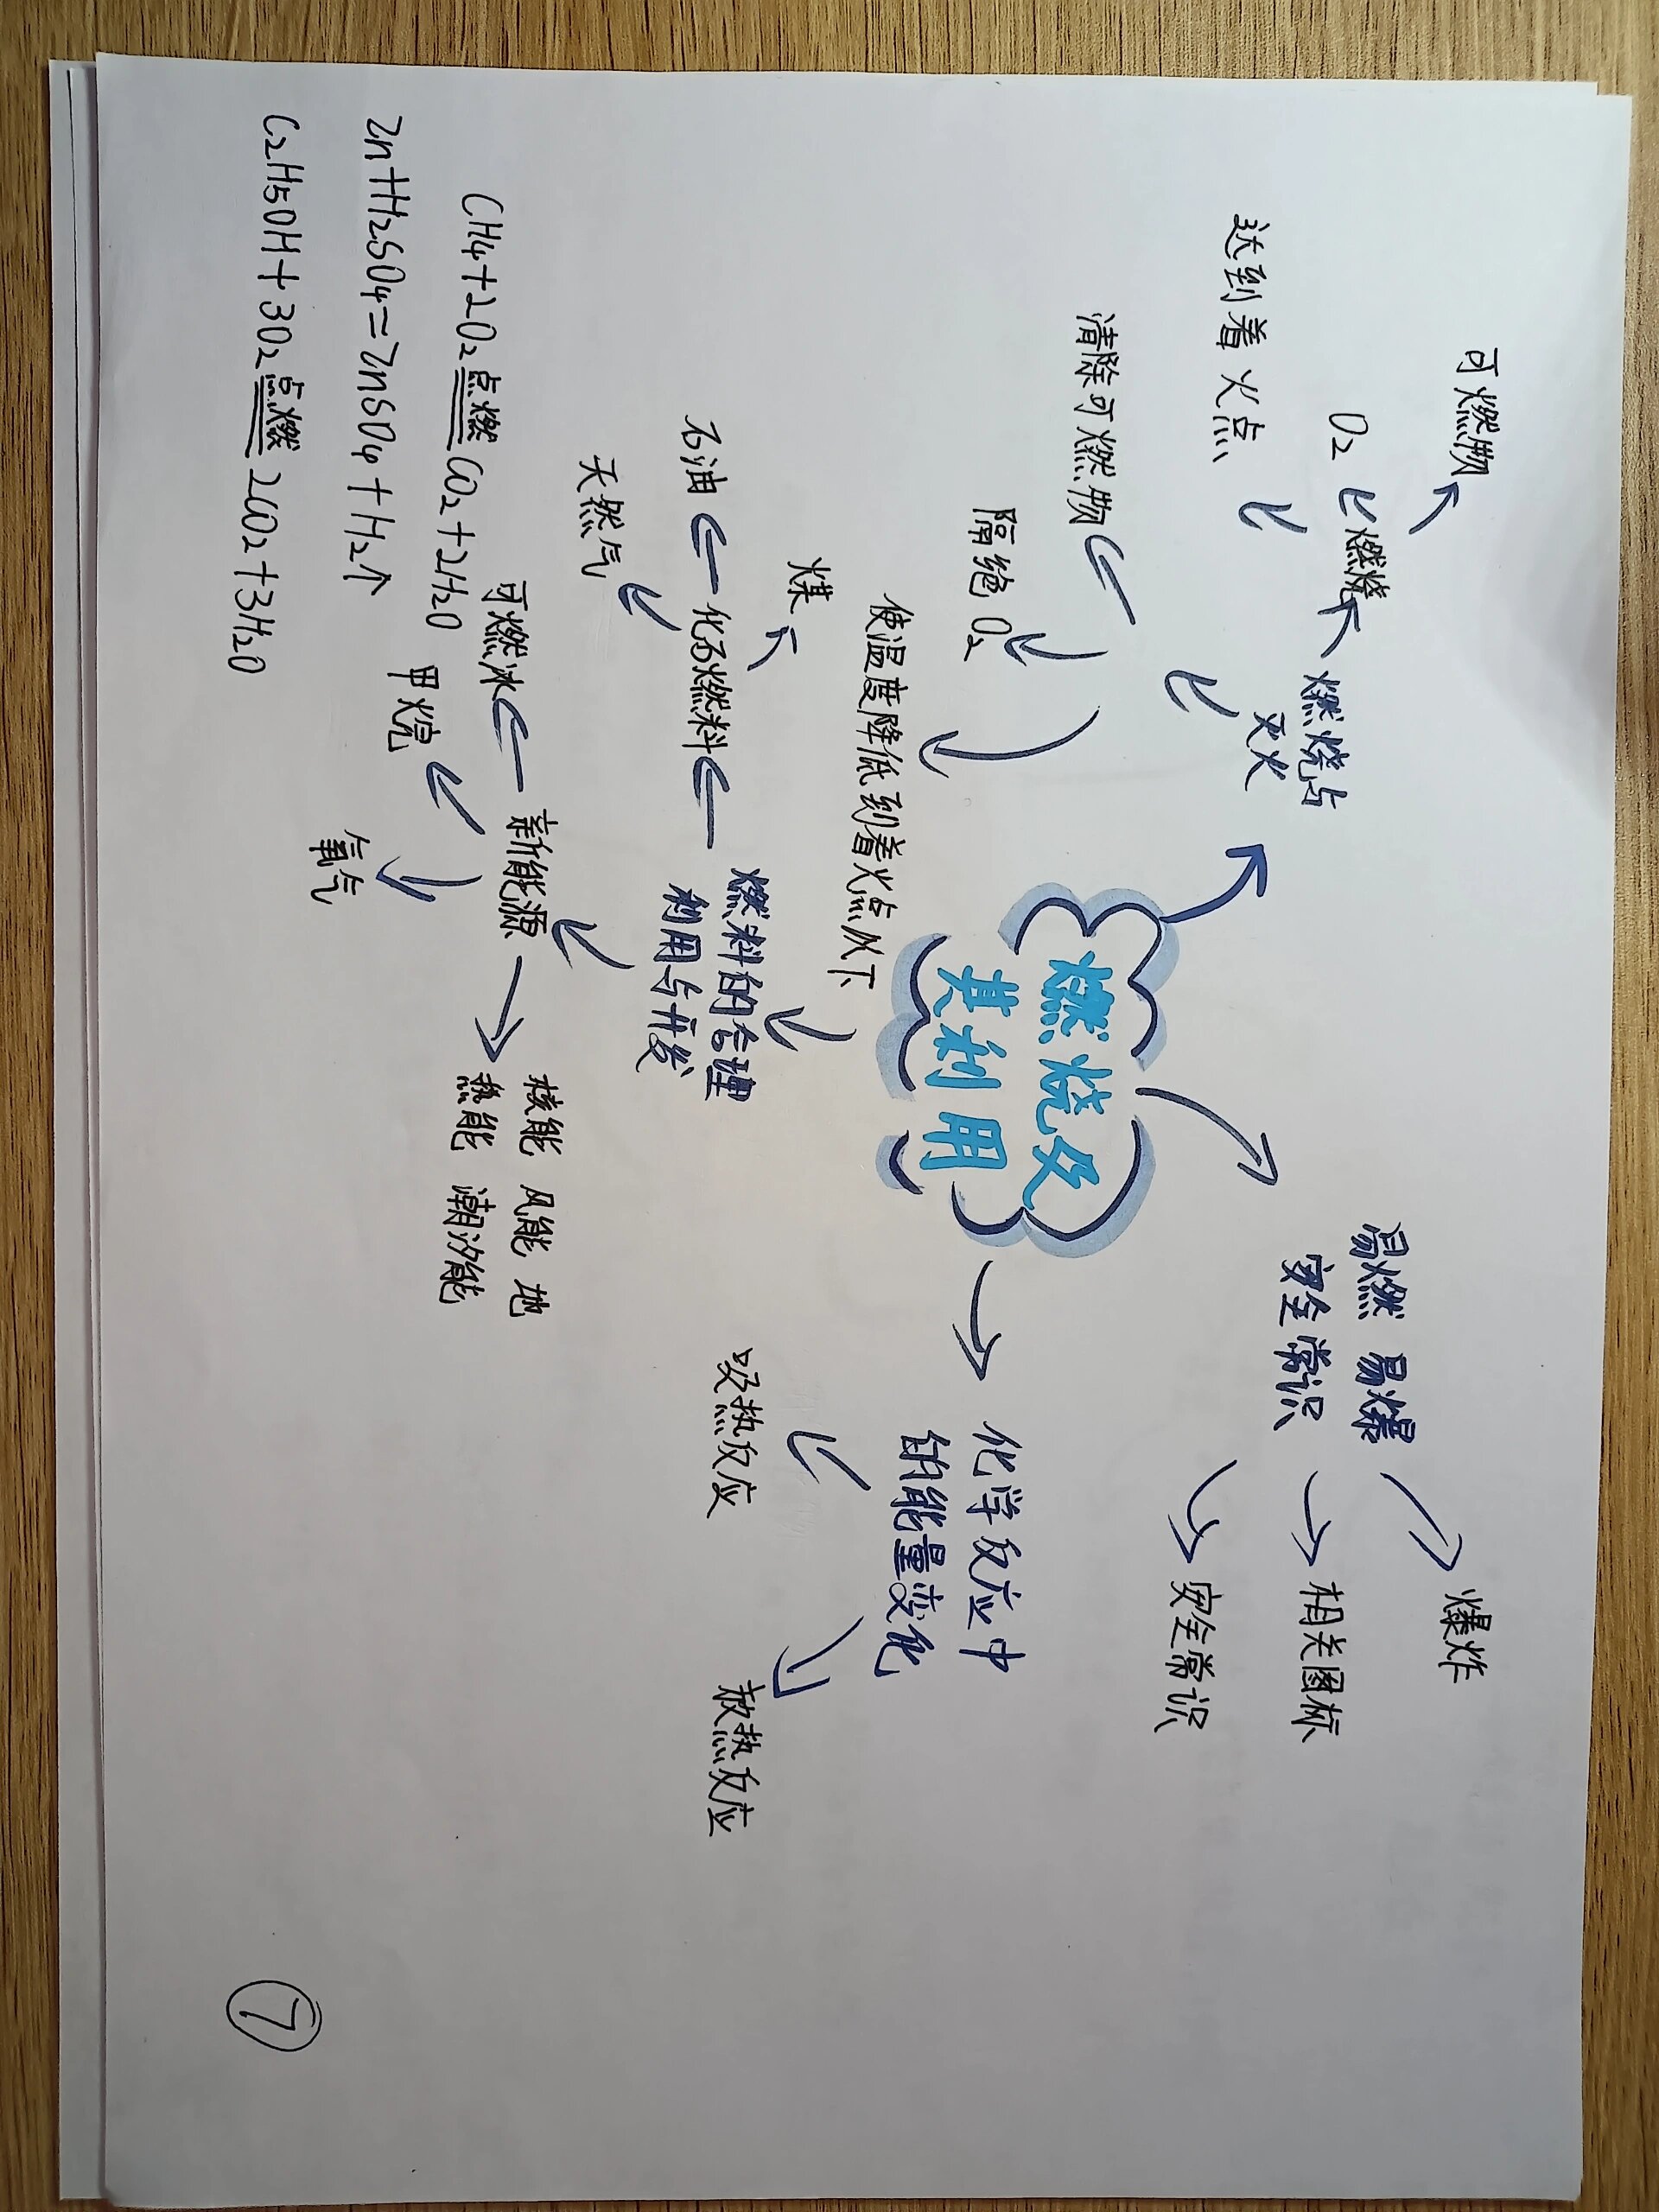 燃烧及
其利用
燃烧与
灭火
燃烧
可燃物
O₂
达到着火点
清除可燃物
隔绝 O₂
使温度降低到着火点以下
易燃 易爆
安全常识
爆炸
相关图标
安全常识
化学反应中
的能量变化
吸热反应
放热反应
燃料的合理
利用与开发
化石燃料
煤
石油
天然气
新能源
可燃冰
甲烷
氧气
核能 风能 地
热能 潮汐能
CH₄+2O₂点燃CO₂+2H₂O
Zn+H₂SO₄=ZnSO₄+H₂↑
C₂H₅OH+3O₂点燃2CO₂+3H₂O
7